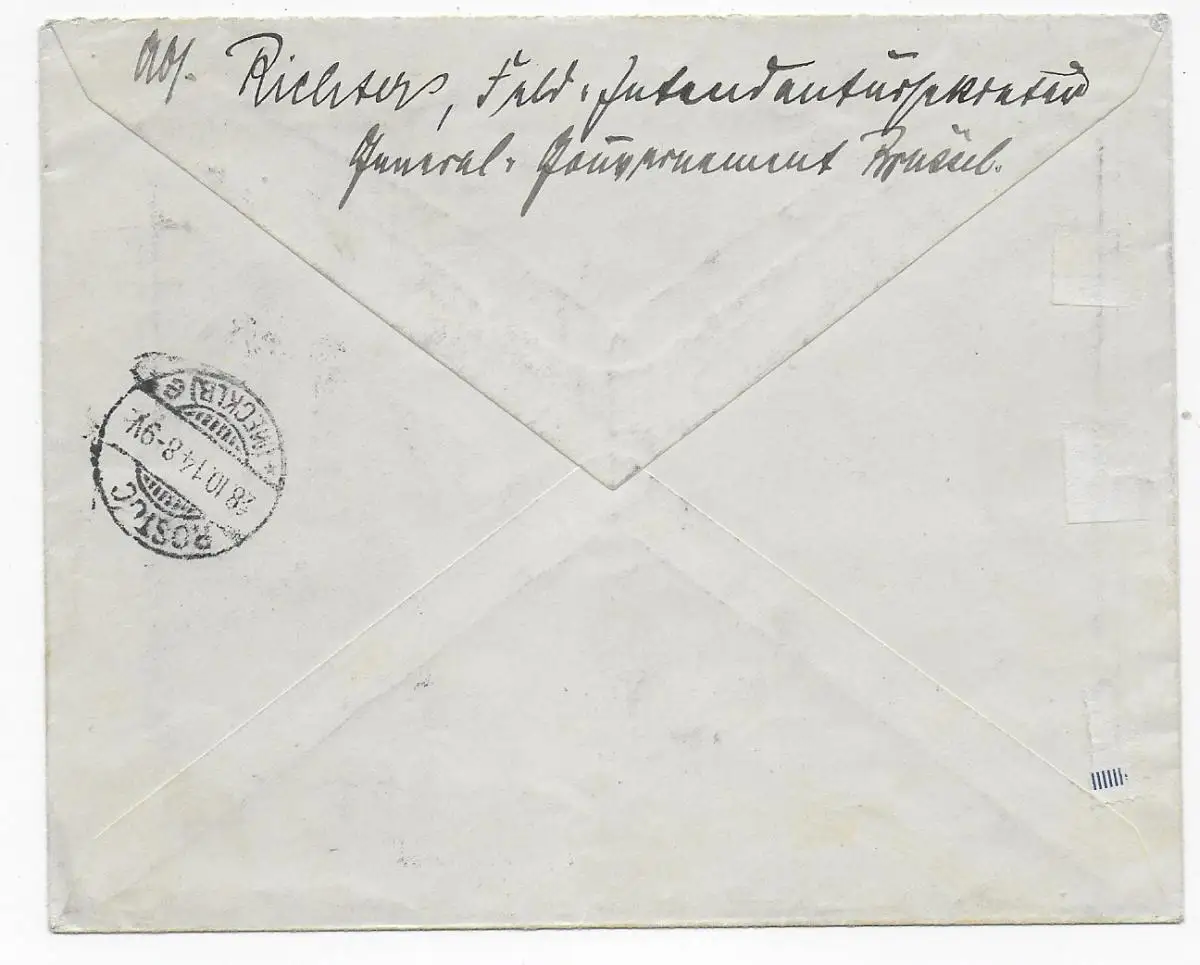 Abs. Richters, Feld-Intendantursekretär
General-Gouvernement Brüssel.
ROSTOCK
28.10.14.8-9V.
* (MECKLB) e